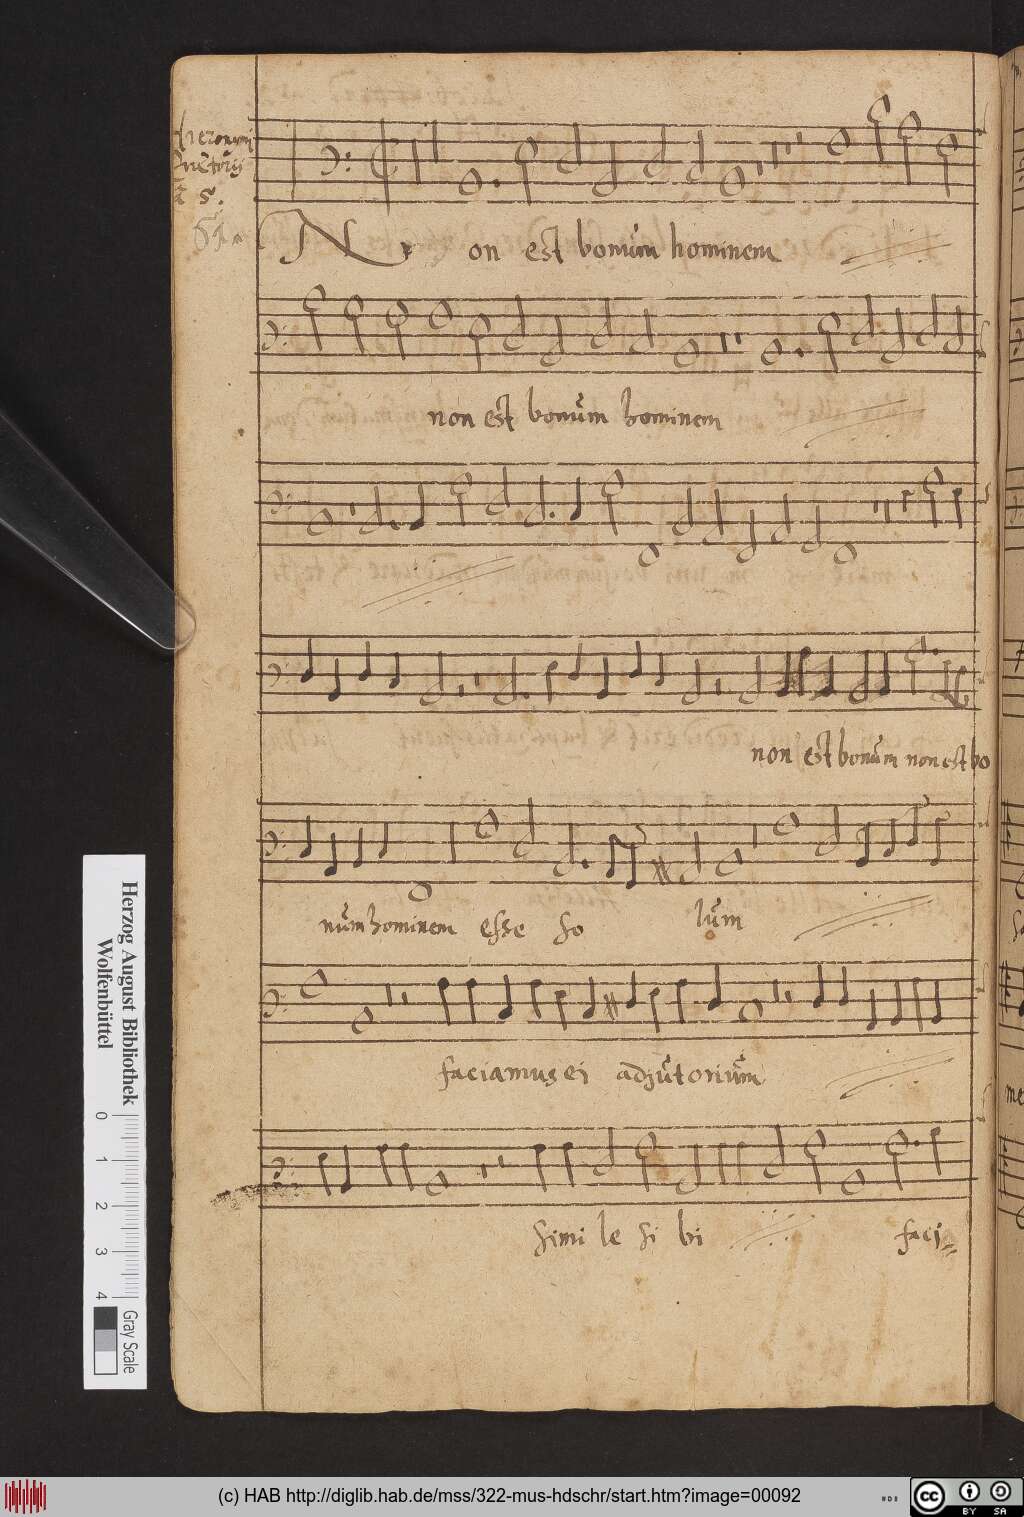 Hieronymi
Prætorij
à 5.
51.
Non est bonum hominem
non est bonum hominem
non est bonum non est bo
num hominem esse so lum
faciamus ei adjutorium
simi le si bi faci=
Herzog August Bibliothek
Wolfenbüttel
0 1 2 3 4
Gray Scale
(c) HAB http://diglib.hab.de/mss/322-mus-hdschr/start.htm?image=00092
cc BY SA